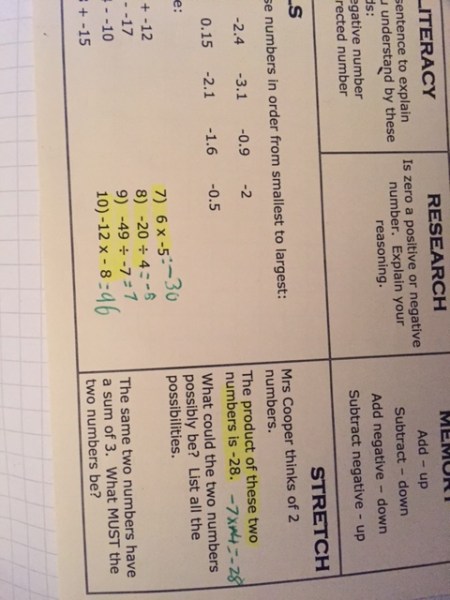 LITERACY
sentence to explain
understand by these
negative number
RESEARCH
Is zero a positive or negative
number. Explain your
reasoning.
MEMORY
Add – up
Subtract – down
Add negative – down
Subtract negative - up
se numbers in order from smallest to largest:
-2.4 -3.1 -0.9 -2
0.15 -2.1 -1.6 -0.5
e:
+ -12
- -17
- -10
+ -15
7) 6 x -5 = -30
8) -20 ÷ 4 =
9) -49 ÷ -7 = 7
10) -12 x - 8 = 96
STRETCH
Mrs Cooper thinks of 2
numbers.
The product of these two
numbers is -28. -7x4=-28
What could the two numbers
possibly be? List all the
possibilities.
The same two numbers have
a sum of 3. What MUST the
two numbers be?